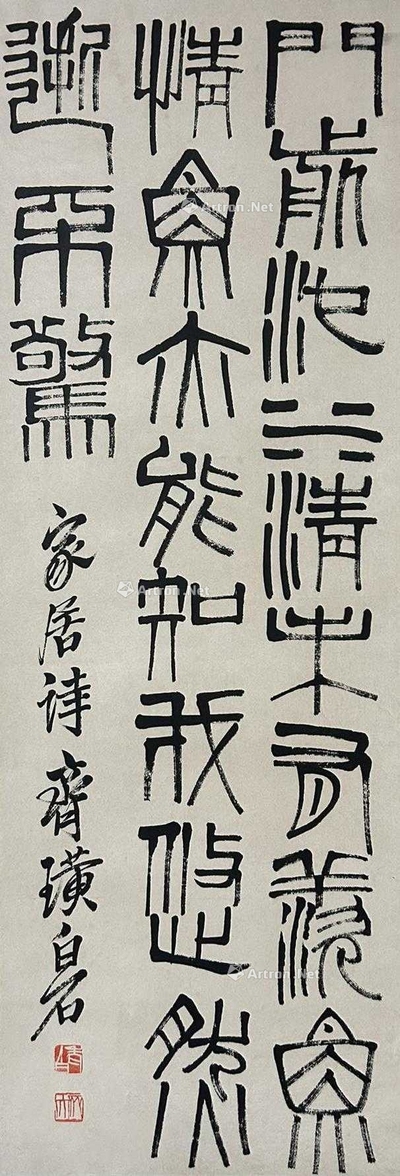 門前池上清未有羨魚
情魚亦能知我悠然
逝不驚
家居詩 齊璜白石
Artron.Net
Artron.Net
Artron.Net